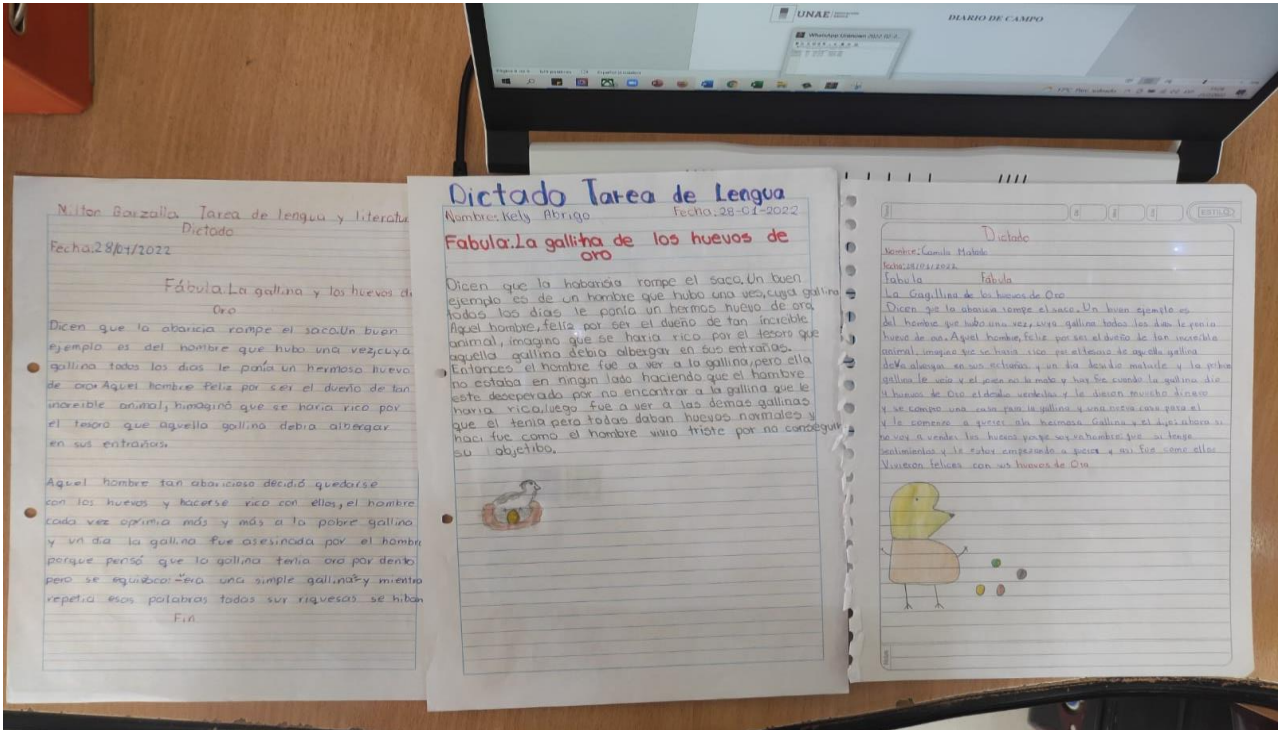 UNAE
DIARIO DE CAMPO
Milton Tarea de lengua y literatu
Dictado
Fecha:28/01/2022
Fábula.La gallina y los huevos de
Oro
Dicen que la abaricia rompe el saco.Un buen
ejemplo es del hombre que hubo una vez,cuya
gallina todos los dias le ponía un hermoso huevo
de oro. Aquel hombre feliz por ser el dueño de tan
increible animal, himaginó que se haria rico por
el tesoro que aquella gallina debia albergar
en sus entrañas.
Aquel hombre tan abaricioso decidió quedarse
con los huevos y hacerse rico con ellos, el hombre
cada vez oprimia más y más a la pobre gallina
y un dia la gallina fue asesinada por el hombr
porque pensó que la gallina tenia oro por dento
pero se equiboco: "era una simple gallina" y mientra
repetia esas palabras todas sus riquesas se hiban
Fin
Dictado Tarea de Lengua
Nombre: Kely Abrigo Fecha: 28-01-2022
Fabula:La gallina de los huevos de
oro
Dicen que la habarisia rompe el saco. Un buen
ejemplo es de un hombre que hubo una ves, cuya gallina
todos los dias le ponía un hermos huevo de oro
Aquel hombre, feliz por ser el dueño de tan increible
animal, imagino que se haria rico por el tesoro que
aquella gallina debia albergar en sus entrañas.
Entonces el hombre fue a ver a la gallina, pero ella
no estaba en ningun lado haciendo que el hombre
este desesperado por no encontrar a la gallina que le
haria rica, luego fue a ver a las demas gallinas
que el tenia pero todas daban huevos normales y
haci fue como el hombre vivio triste por no conseguir
su objetibo.
Dictado
Nombre: Camila
Fecha: 28/01/2022
Fabula Fábula
La Gagillina de los huevos de Oro
Dicen que la abaricia rompe el saco. Un buen ejemplo es
del hombre que hubo una vez, cuya gallina todos los dias le ponia
huevo de oro. Aquel hombre, feliz por ser el dueño de tan increible
animal, imagino que se haria rico por el tesoro de aquella gallina
devia albergar en sus y un dia matarle y la pobre
gallina le veia y el no la mato y hay fue cuando la gallina dio
huevos de Oro el venderlas y le dieron mucho dinero
y se compro una casa para la gallina y una nueva casa para el
y le comenso a querer ala hermosa Gallina y el dijo ahora si
no voy a vender los huevos porque soy un hombre que si tengo
sentimientos y le estoy empezando a querer y asi fue como ellos
Vivieron felices con sus huevos de Oro